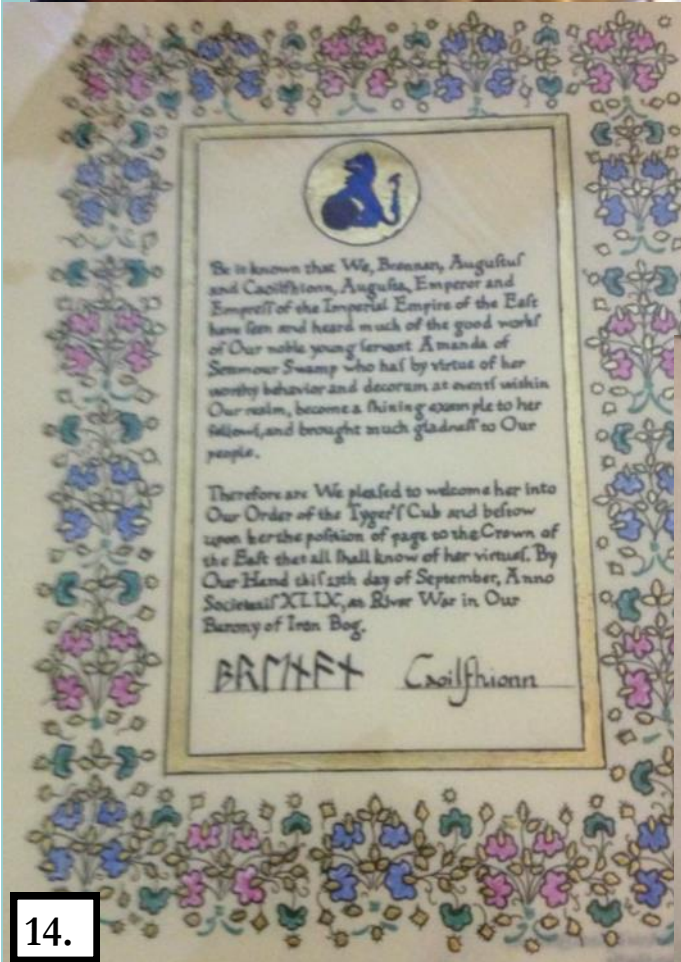 Be it known that We, Brennan, Auguſtuſ
and Caoilfhionn, Auguſta, Emperor and
Empreſſ of the Imperial Empire of the Eaſt
have ſeen and heard much of the good workſ
of Our noble young ſervant Amanda of
Settmour Swamp who haſ by virtue of her
worthy behavior and decorum at eventſ within
Our realm, become a ſhining example to her
fellowſ, and brought much gladneſſ to Our
people.
Therefore are We pleaſed to welcome her into
Our Order of the Tyger'ſ Cub and beſtow
upon her the poſition of page to the Crown of
the Eaſt that all ſhall know of her virtueſ. By
Our Hand thiſ day of September, Anno
Societatiſ XLIX, at River War in Our
Barony of Iron Bog.
ᛒᚱᛖᚾᚨᚾ Caoilfhionn
14.